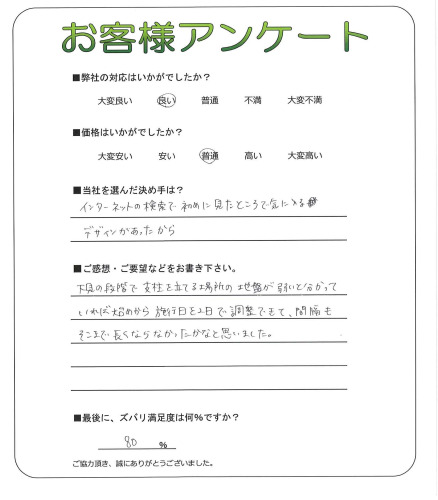 お客様アンケート
■弊社の対応はいかがでしたか?
大変良い 良い 普通 不満 大変不満
■価格はいかがでしたか?
大変安い 安い 普通 高い 大変高い
■当社を選んだ決め手は?
インターネットの検索で初めに見たところで気に入る
デザインがあったから
■ご感想・ご要望などをお書き下さい。
下見の段階で支柱を立てる場所の地盤が弱いと分かって
いれば始めから施行日を2日で調整できて、間隔も
そこまで長くならなかったかなと思いました。
■最後に、ズバリ満足度は何%ですか?
80 %
ご協力頂き、誠にありがとうございました。